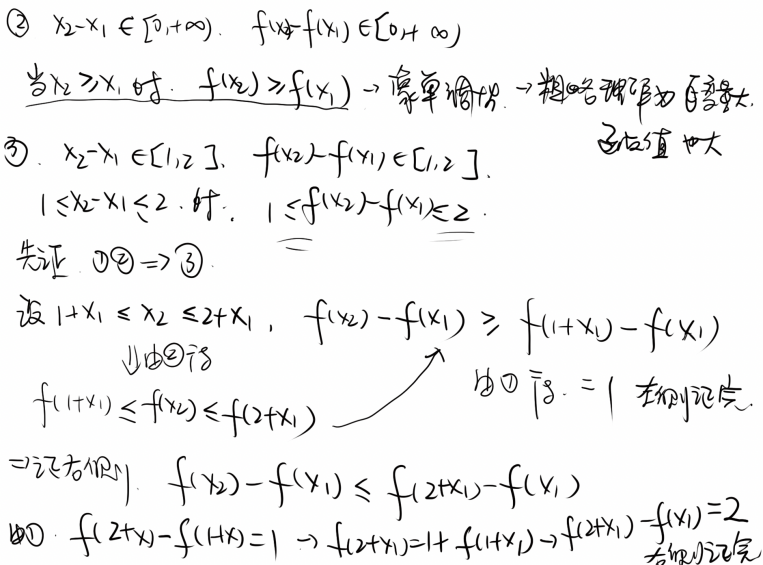 ② x₂-x₁∈[0,+∞). f(x₂)-f(x₁)∈[0,+∞)
当x₂≥x₁时. f(x₂)≥f(x₁) → 单调 → 粗略理解为自变量大.
函数值也大
③. x₂-x₁∈[1,2]. f(x₂)-f(x₁)∈[1,2].
1≤x₂-x₁≤2.时. 1≤f(x₂)-f(x₁)≤2.
先证 ①②⇒③.
设 1+x₁≤x₂≤2+x₁, f(x₂)-f(x₁)≥f(1+x₁)-f(x₁)
⇓由②得
由①得.=1 左侧证完.
f(1+x₁)≤f(x₂)≤f(2+x₁)
⇒证右侧. f(x₂)-f(x₁)≤f(2+x₁)-f(x₁)
由①. f(2+x)-f(1+x)=1 → f(2+x₁)=1+f(1+x₁) → f(2+x₁)-f(x₁)=2
右侧证完